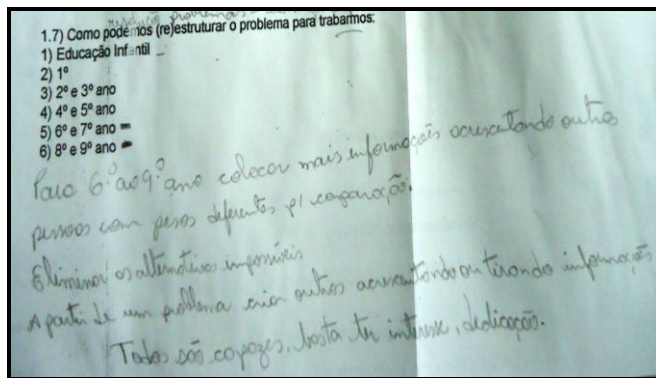 resolução problemas
1.7) Como podemos (re)estruturar o problema para trabarmos:
1) Educação Infantil
2) 1º
3) 2º e 3º ano
4) 4º e 5º ano
5) 6º e 7º ano
6) 8º e 9º ano
Para 6º ao 9º ano colocar mais informações acrescentando outras
pessoas com pesos diferentes p/ comparação.
Eliminar as alternativas impossíveis
A partir de um problema criar outros acrescentando ou tirando informações
Todos são capazes, basta ter interesse, dedicação.